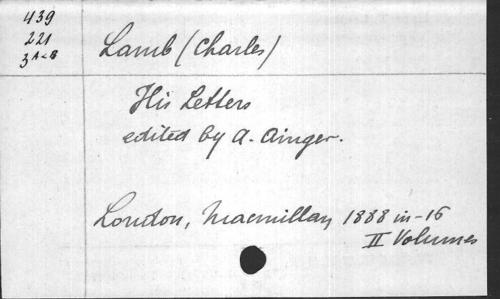 439
221
3 A-B
Lamb (Charles)
His Letters
edited by A. Ainger.
London, Macmillan, 1888 in-16
II Volumes